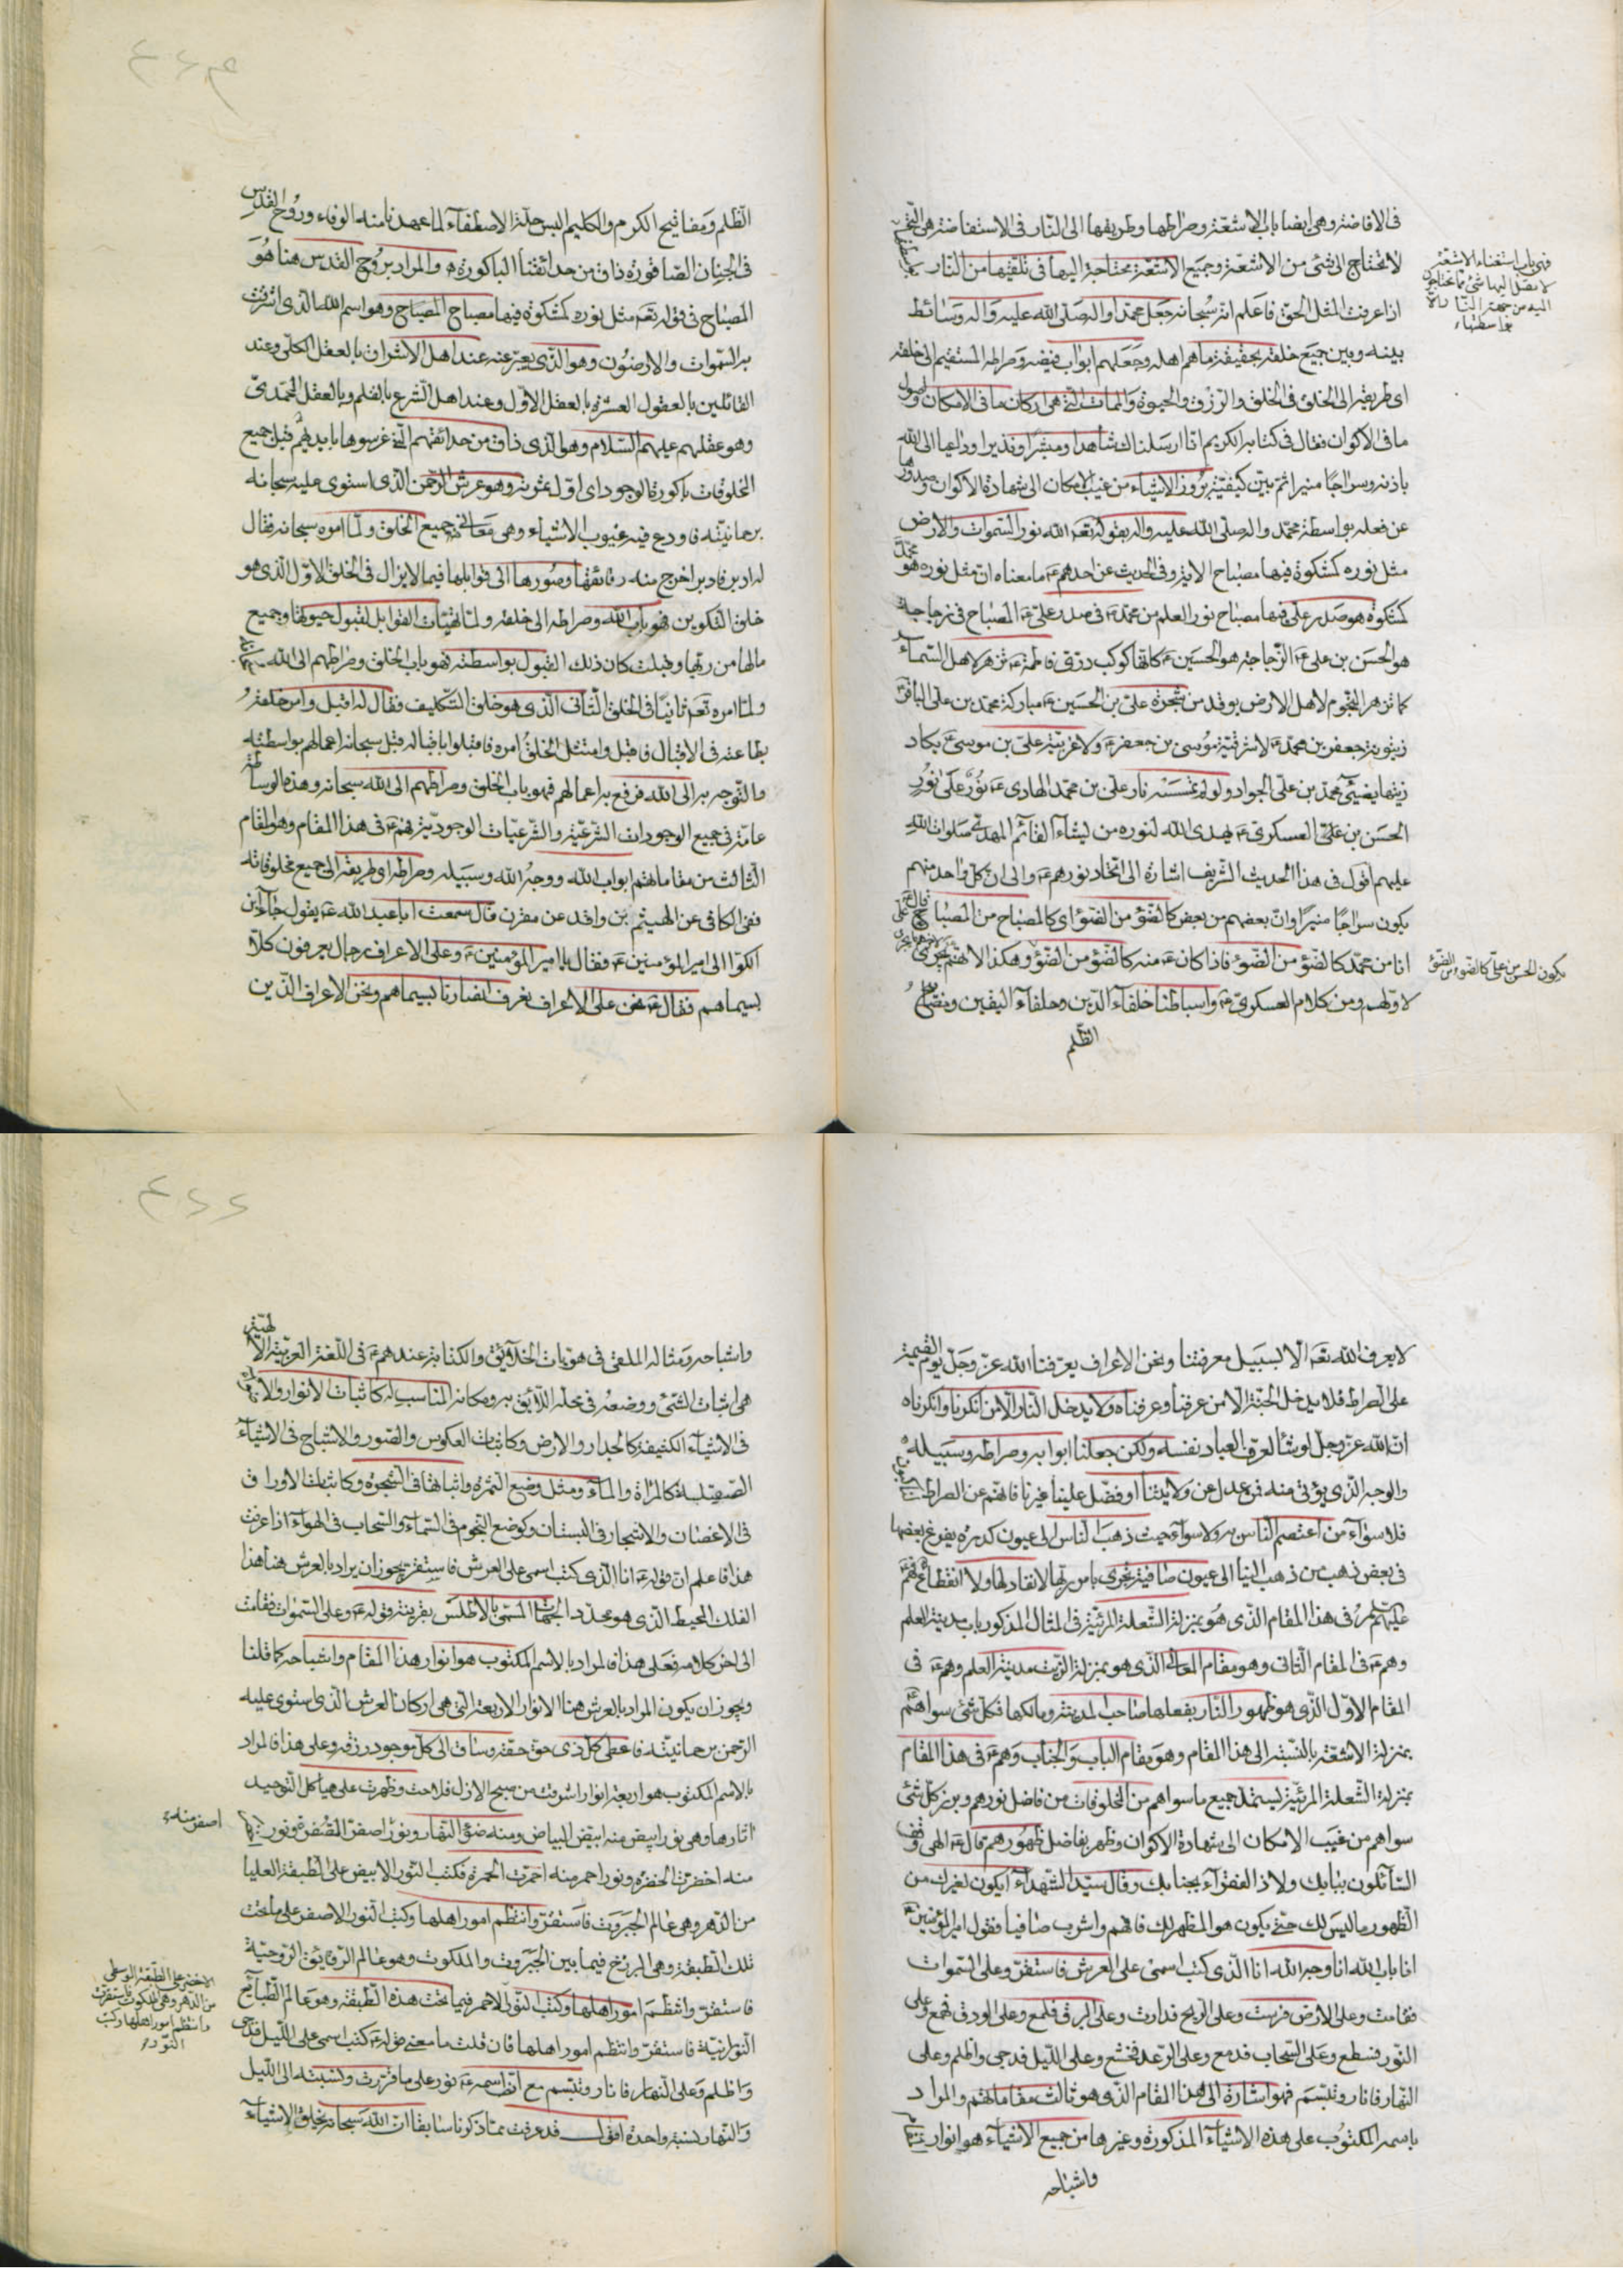 في الافاضة وهي ايضا باب الاشعة وصراطها وطريقها الى النار في الاستفاضة هي
لا تحتاج الى شئ من الاشعة وجميع الاشعة محتاجة اليها في تلقيها من النار
فهي باب استغناء الاشعة
لا يصل اليها شئ مما تحتاج
اليه من جهة النار الا
بواسطتها
اذا عرفت المثل الحق فاعلم انه سبحانه جعل محمدا واله صلى الله عليه واله وسائط
بينه وبين جميع خلقه بحقيقة ما هم اهله وجعلهم ابواب فيضه وصراطه المستقيم الى خلقه
اى طريقه الى الخلق في الخلق والرزق والحيوة والممات التي هي اركان ما في الامكان واصول
ما في الاكوان فقال في كتابه الكريم انا ارسلناك شاهدا ومبشرا ونذيرا وداعيا الى الله
باذنه وسراجا منيرا ثم بين كيفية بروز الاشياء من غيب الامكان الى شهادة الاكوان وصدورها
عن فعله بواسطة محمد واله صلى الله عليه واله بقوله تعه الله نور السموات والارض
مثل نوره كمشكوة فيها مصباح الاية وفي الحديث عن احدهم ع ما معناه ان مثل نوره هو محمد
كمشكوة هو صدر علي فيها مصباح نور العلم من محمد ص في صدر علي ع المصباح في زجاجة
هو الحسن بن علي ع الزجاجة هو الحسين ع كانها كوكب دري فاطمة ع تزهر لاهل السماء
كما تزهر النجوم لاهل الارض يوقد من شجرة علي بن الحسين ع مباركة محمد بن علي الباقر ع
زيتونة جعفر بن محمد ع لا شرقية موسى بن جعفر ع ولا غربية علي بن موسى ع يكاد
زيتها يضئ محمد بن علي الجواد ولو لم تمسسه نار علي بن محمد الهادي ع نور على نور
الحسن بن علي العسكري ع يهدى الله لنوره من يشاء القائم المهدي صلوات الله
عليهم اقول في هذا الحديث الشريف اشارة الى اتحاد نورهم ع والى ان كل واحد منهم
يكون سراجا منيرا وان بعضهم من بعض كالضوء من الضوء اي كالمصباح من المصباح قال علي
انا من محمد كالضوء من الضوء فاذا كان ع منه كالضوء من الضوء وهكذا لانهم يجري
يكون الحسن من علي كالضوء من الضوء
لاولهم ومن كلام العسكري ع واسباطنا خلفاء الدين وحلفاء اليقين ومصابيح
الظلم
الظلم ومفاتيح الكرم والكليم البس حلة الاصطفاء لما عهدنا منه الوفاء وروح القدس
في الجنان الصاقورة ذاق من حدائقنا الباكورة ه والمراد بروح القدس هنا هو
المصباح في قوله تعه مثل نوره كمشكوة فيها مصباح المصباح وهو اسم الله الذى اشرقت
به السموات والارضون وهو الذي يعبر عنه عند اهل الاشراق بالعقل الكلي وعند
القائلين بالعقول العشرة بالعقل الاول وعند اهل الشرع بالقلم وبالعقل المحمدي
وهو عقلهم عليهم السلام وهو الذى ذاق من حدائقهم التي غرسوها بايديهم قبل جميع
المخلوقات باكورة الوجود اى اول ثمرته وهو عرش الرحمن الذى استوى عليه سبحانه
برحمانيته فاودع فيه غيوب الاشياء وهي معاني جميع الخلق ولما امره سبحانه فقال
له ادبر فادبر اخرج منه رقائقها وصورها الى قوابلها فيما لا يزال في الخلق الاول الذى هو
خلق التكوين فهو باب الله وصراطه الى خلقه ولما تهيئات القوابل لقبول حيوتها وجميع
مالها من ربها وقبلت كان ذلك القبول بواسطته فهو باب الخلق وصراطهم الى الله
ولما امره تعه ثانيا في الخلق الثاني الذى هو خلق التكليف فقال له اقبل وامر خلقه
بطاعته في الاقبال فاقبل وامتثل الخلق امره فاقبلوا باقباله قبل سبحانه اعمالهم بواسطته
والتوجه به الى الله فرفع به اعمالهم فهو باب الخلق وصراطهم الى الله سبحانه وهذه الوساطة
عامة في جميع الوجودات الشرعية والشرعيات الوجودية فهم ع في هذا المقام وهو المقام
الثالث من مقاماتهم ابواب الله ووجه الله وسبيله وصراطه اى طريقه الى جميع مخلوقاته
ففي الكافي عن الهيثم بن واقد عن مقرن قال سمعت ابا عبد الله ع يقول جاء ابن
الكوا الى امير المؤمنين ع فقال يا امير المؤمنين ع وعلى الاعراف رجال يعرفون كلا
بسيماهم فقال ع نحن على الاعراف نعرف انصارنا بسيماهم ونحن الاعراف الذين
لا يعرف الله تعه الا بسبيل معرفتنا ونحن الاعراف يعرفنا الله عز وجل يوم القيمة
على الصراط فلا يدخل الجنة الا من عرفنا وعرفناه ولا يدخل النار الا من انكرنا وانكرناه
ان الله عز وجل لو شاء لعرف العباد نفسه ولكن جعلنا ابوابه وصراطه وسبيله
والوجه الذى يؤتى منه فمن عدل عن ولايتنا او فضل علينا غيرنا فانهم عن الصراط لناكبون
فلا سواء من اعتصم الناس به ولا سواء حيث ذهب الناس الى عيون كدرة يفرغ بعضها
في بعض وذهب من ذهب الينا الى عيون صافية تجرى بامر ربها لا نفاد لها ولا انقطاع فهم
عليهم السلام في هذا المقام الذى هو بمنزلة الشعلة المرئية في المثال المذكور باب مدينة العلم
وهم ع في المقام الثاني وهو مقام المعاني الذى هو بمنزلة الزيت مدينة العلم وهم ع في
المقام الاول الذى هو ظهور النار بفعلها صاحب المدينة ومالكها فكل شئ سواهم
بمنزلة الاشعة بالنسبة الى هذا المقام وهو مقام الباب والجناب وهم ع في هذا المقام
بمنزلة الشعلة المرئية يستمد جميع ما سواهم من المخلوقات من فاضل نورهم وبرز كل شئ
سواهم من غيب الامكان الى شهادة الاكوان وظهر بفاضل ظهورهم قال ع الهي وقف
السائلون ببابك ولاذ الفقراء بجنابك وقال سيد الشهداء ايكون لغيرك من
الظهور ما ليس لك حتى يكون هو المظهر لك فافهم واشرب صافيا فقول امير المؤمنين ع
انا باب الله انا وجه الله انا الذى كتب اسمى على العرش فاستقر وعلى السموات
فقامت وعلى الارض فرست وعلى الريح فدارت وعلى البرق فلمع وعلى الودق فهمع وعلى
النور فسطع وعلى السحاب فدمع وعلى الرعد فخشع وعلى الليل فدجى واظلم وعلى
النهار فانار وتبسم فهو اشارة الى هذا المقام الذى هو ثالث مقاماتهم والمراد
باسمه المكتوب على هذه الاشياء المذكورة وغيرها من جميع الاشياء هو انوار
واشباحه
واشباحه ومثاله الملقى في هويات الخلائق والكتابة عندهم ع في اللغة العربية الالهية
هي اثبات الشئ ووضعه في محله اللائق به ومكانه المناسب له كاثبات الانوار
في الاشياء الكثيفة كالجدار والارض وكاثبات العكوس والصور والاشباح في الاشياء
الصيقلية كالمراة والماء ومثل وضع الثمرة واثباتها في الشجرة وكاثبات الاوراق
في الاغصان والاشجار في البستان وكوضع النجوم في السماء والسحاب في الهواء اذا عرفت
هذا فاعلم ان قوله ع انا الذى كتب اسمى على العرش فاستقر يجوز ان يراد بالعرش هنا هذا
الفلك المحيط الذى هو محدد الجهات المسمى بالاطلس بقرينة قوله ع وعلى السموات فقامت
الى اخر كلامه فعلى هذا فالمراد بالاسم المكتوب هو انوار هذا المقام واشباحه كما قلنا
ويجوز ان يكون المراد بالعرش هنا الانوار الاربعة التي هي اركان العرش الذى استوى عليه
الرحمن برحمانيته فاعطى كل ذى حق حقه وساق الى كل موجود رزقه وعلى هذا فالمراد
بالاسم المكتوب هو اربعة انوار اشرقت من صبح الازل فلاحت وظهرت على هياكل التوحيد
اثارها وهي نور ابيض منه ابيض البياض ومنه ضوء النهار ونور اصفر اصفرت الصفرة ونور
اصفر منه
منه اخضرت الخضرة ونور احمر منه احمرت الحمرة فكتب النور الابيض على الطبقة العليا
من الدهر وهي عالم الجبروت فاستقرت وانتظم امور اهلها وكتب النور الاصفر على ما تحت
تلك الطبقة وهي البرزخ فيما بين الجبروت والملكوت وهو عالم الرقايق الروحية
فاستقر وانتظم امور اهلها وكتب النور الاحمر فيما تحت هذه الطبقة وهو عالم الطبايع
الاخضر على الطبقة الوسطى
من الدهر وهي الملكوت فاستقرت
وانتظم امور اهلها وكتب
النور
النورانية فاستقر وانتظم امور اهلها فان قلت ما معنى قوله ع كتب اسمى على الليل فدجى
واظلم وعلى النهار فانار وتبسم مع ان اسمه ع نور على ما قررت ونسبته الى الليل
والنهار نسبة واحدة اقول قد عرفت مما ذكرنا سابقا ان الله سبحانه خلق الاشياء